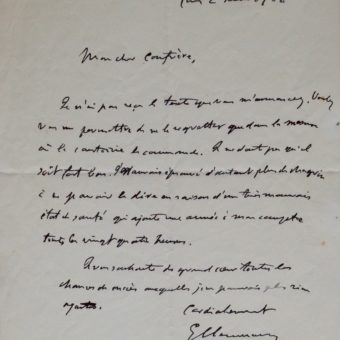 Mon cher Confrère,
Je n'ai pas reçu le texte que vous m'annoncez. Voulez
vous me permettre de ne le regretter que dans la mesure
où la courtoisie le commande. Je ne doute pas qu'il
soit fort bon. J'aurais éprouvé d'autant plus de chagrin
à ne pouvoir le dire en raison d'un très mauvais
état de santé qui ajoute une année à mon compte
toutes les vingt quatre heures.
Je vous souhaite de grand cœur toutes les
chances de succès auxquelles je ne pourrais plus rien
ajouter.
Cordialement